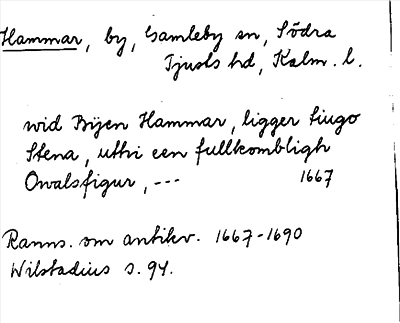 Hammar, by, Gamleby sn, Södra
Tjusts hd, Kalm. l.
wid Bÿen Hammar, ligger siugo
Stena, uthi een fullkombligh
Owalsfigur, --- 1667
Ranns. om antikv. 1667-1690
Wilstadius s. 94.